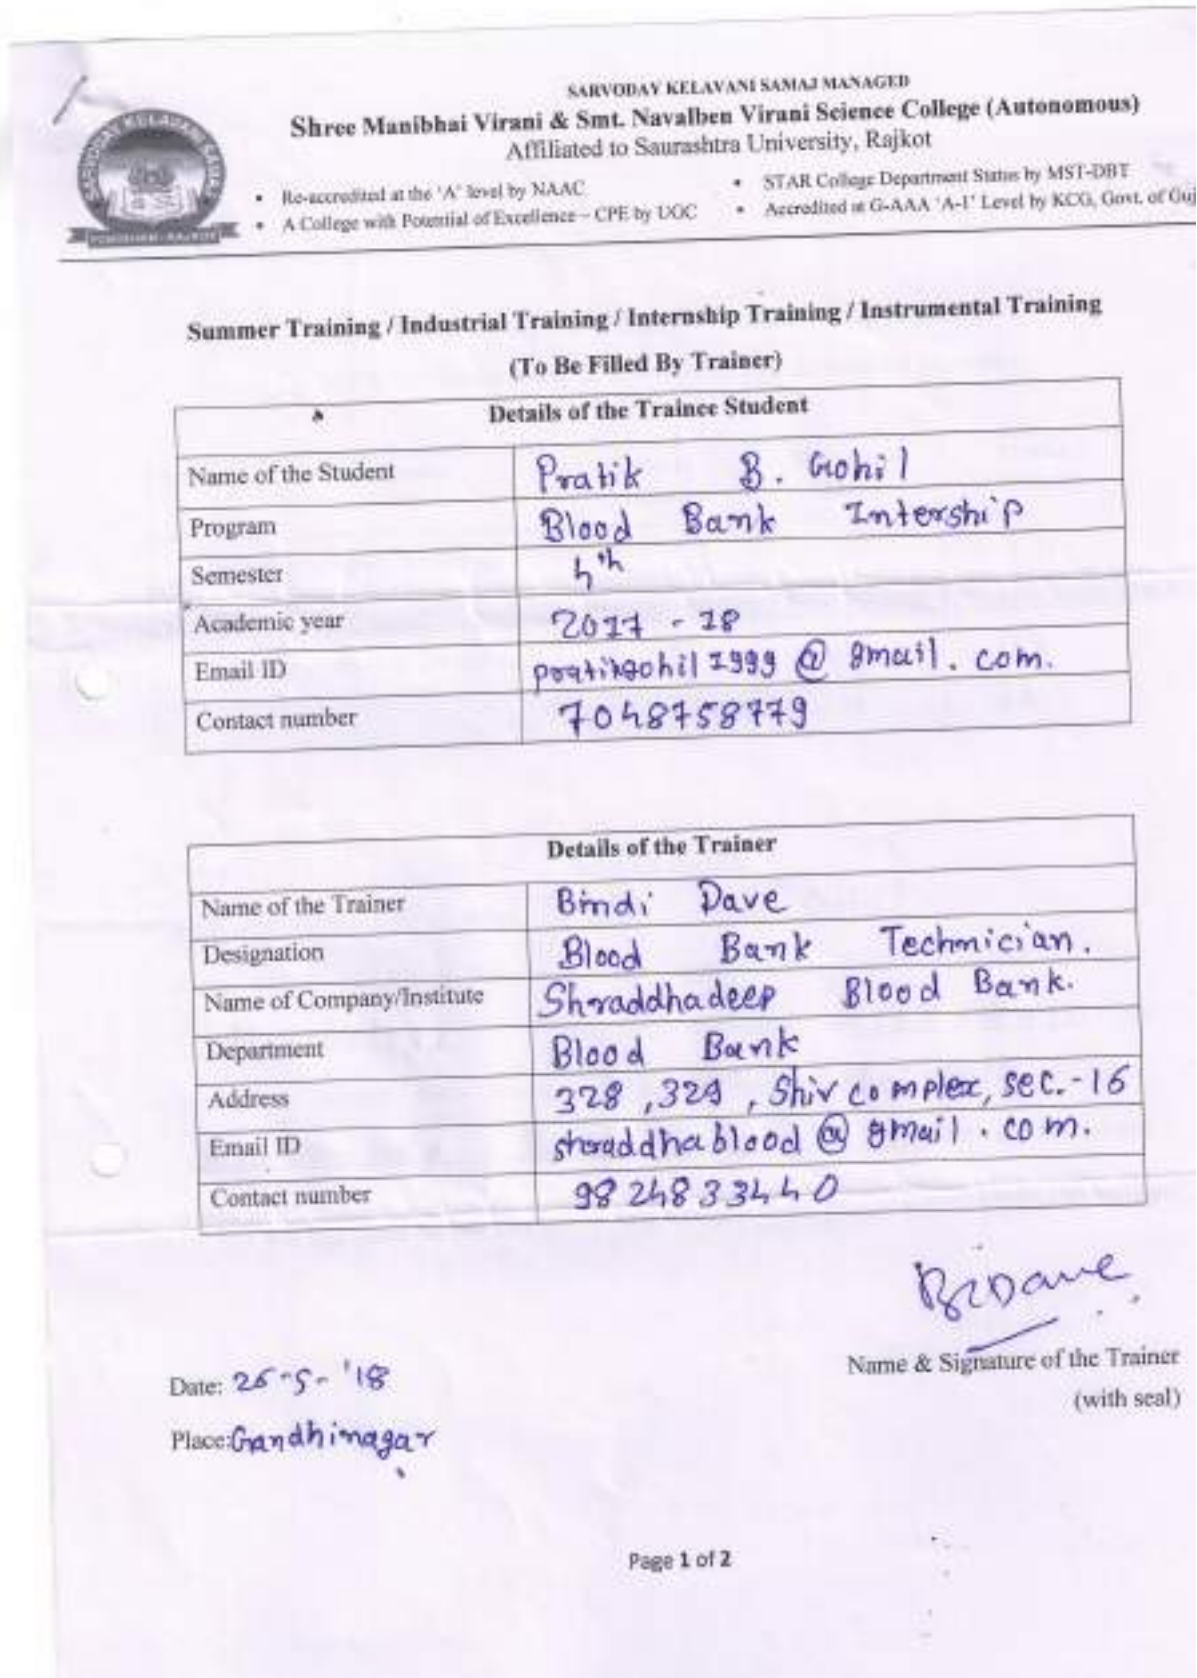 SARVODAY KELAVANI SAMAJ MANAGED
Shree Manibhai Virani & Smt. Navalben Virani Science College (Autonomous)
Affiliated to Saurashtra University, Rajkot
• Re-accredited at the 'A' level by NAAC • STAR College Department Status by MST-DBT
• A College with Potential of Excellence – CPE by UGC • Accredited at G-AAA 'A-1' Level by KCG, Govt. of Guj
Summer Training / Industrial Training / Internship Training / Instrumental Training
(To Be Filled By Trainer)
Details of the Trainee Student
Name of the Student Pratik B. Gohil
Program Blood Bank Intership
Semester 4th
Academic year 2017 - 18
Email ID pratikgohil1999@gmail.com.
Contact number 7048758779
Details of the Trainer
Name of the Trainer Bindi Dave
Designation Blood Bank Technician.
Name of Company/Institute Shraddhadeep Blood Bank.
Department Blood Bank
Address 328, 329, Shiv complex, sec.-16
Email ID shraddhablood@gmail.com.
Contact number 9824833440
Name & Signature of the Trainer
(with seal)
Date: 26-5-'18
Place: Gandhinagar
Page 1 of 2